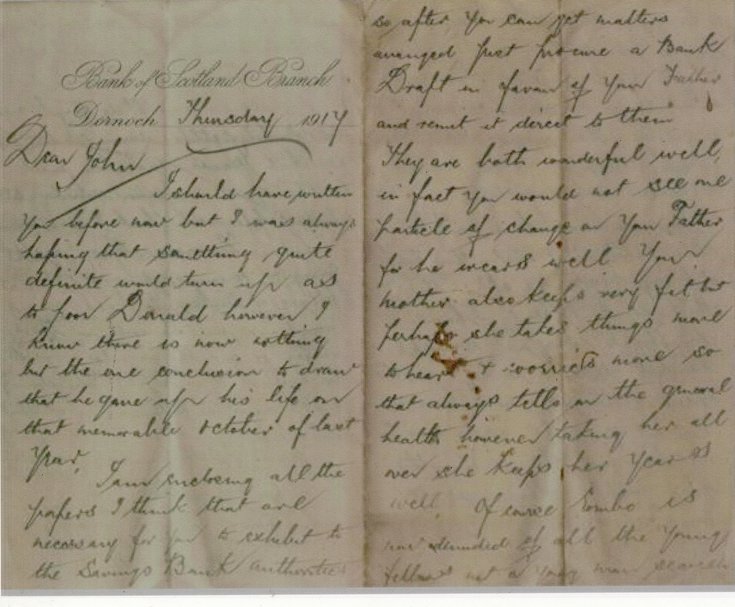 Bank of Scotland Branch
Dornoch Thursday 1917
Dear John
I should have written
you before now but I was always
hoping that something quite
definite would turn up as
to poor Donald however I
know there is now nothing
but the one conclusion to draw
that he gave up his life on
that memorable October of last
Year.
I am enclosing all the
papers I think that are
necessary for you to exhibit to
the Savings Bank authorities
so after you can get matters
arranged just procure a Bank
Draft in favour of Your Father
and remit it direct to them
They are both wonderful well,
in fact you would not see one
particle of change on Your Father
for he wears well Your
mother also keeps very fit but
perhaps she takes things more
to heart + worries more so
that always tells on the general
health however taking her all
over she keeps her years
well. Of course Embo is
now denuded of all the young
fellows not a young man